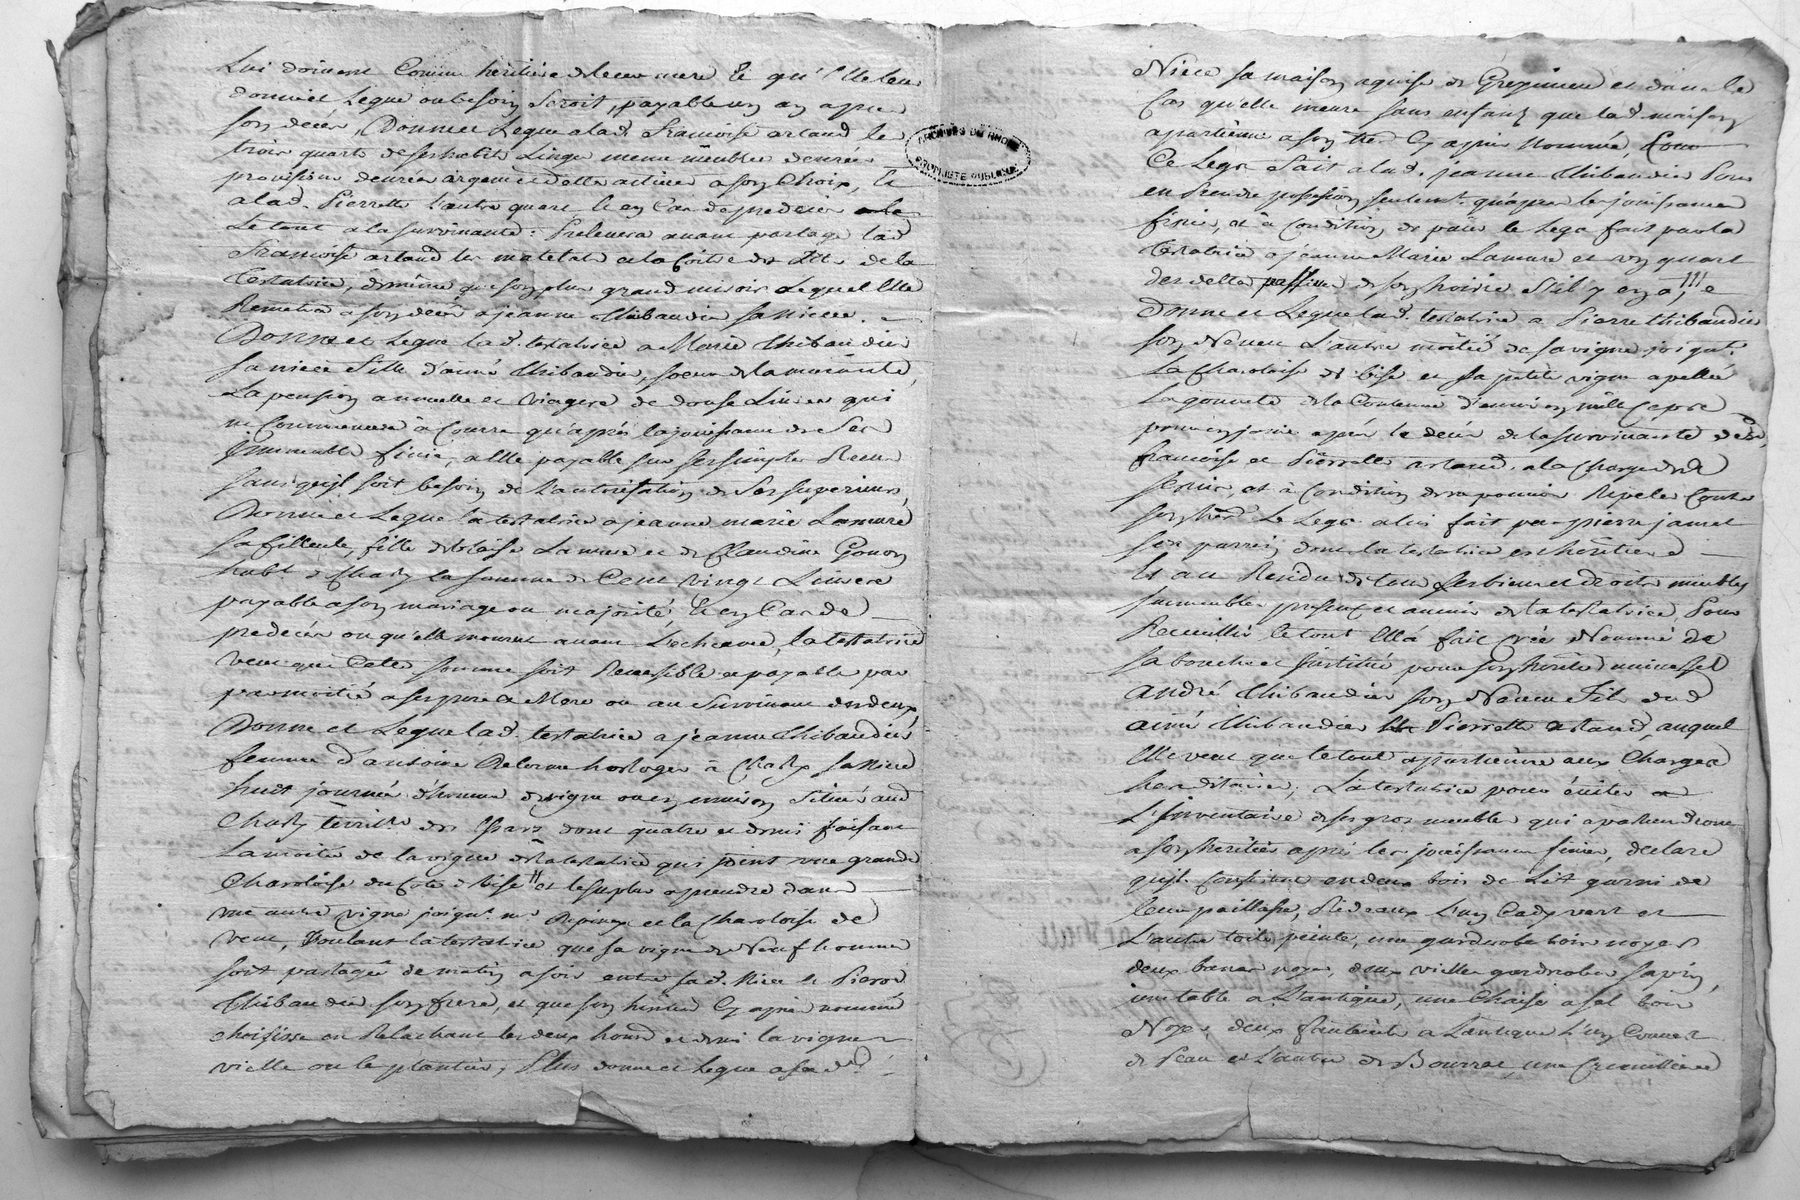 Lui doivent Comme héritiere de leur mere Et qu'Elle leur
donne et Legue où besoin Seroit, payable un an apres
son décès, Donne et Legue a lad. francoise artaud le
trois quarts de ses habits Linge menu meubles denrées
provisions denrées argent et dettes actives a son Choix, Et
a lad. Pierrette l'autre quart Et en Cas de predeces
Le tout a la survivante: Prelevera avant partage lad.
francoise artaud les matelats et la Coitte des Lits de la
testatrice, de même que son plus grand miroir Lequel Elle
Remettra a son decés a jeanne thibaudier sa Niece.
Donne et Legue lad. testatrice a Marie thibaudier
sa niece fille d'aimé thibaudier, soeur de la
La pension annuelle et viagere de douse Livres qui
ne Commencera à Courir qu'après la jouissance de Ses
Immeubles finie, a Elle payable sur ses simples Recus
sans qu'il soit besoin de L'autorisation de Ses superieurs,
Donne et Legue la testatrice a jeanne marie Lamure
sa filleule, fille de blaise Lamure et de Claudine Gonon
habt. a la somme de Cent vingt Livres
payable a son mariage ou majorité, Et en Cas de
predecés ou qu'elle mourut avant L'echeance, la testatrice
veut que Cette somme soit Reversible et payable par
par moitié a ses pere et Mere ou au Survivant des deux,
Donne et Legue lad. testatrice a jeanne thibaudier
femme d'antoine Delorme horloger à sa Niece
huit journées d'homme de vigne ou environ Situés aud.
territre. des dont quatre et demi faisant
La moitié de la vigne de la testatrice qui joint une grande
Charoloise du Coté de bise et le surplus a prendre dans
une autre vigne joignt. mr. et la Charoloise de
vent, Voulant la testatrice que sa vigne de Neuf hommes
soit partagée de matin a soir entre sad. Niece Et Pierre
thibaudier son frere, et que son héritier Cy après nommé
choisisse en Relachant les deux hommes et demi la vigne
vielle ou le plantier, Plus donne et Legue a sad.
Niece sa maison aquise de et dans le
Cas qu'elle meure sans enfans que lad. maison
apartienne a son her. Cy après Nommé,
Ce Legs fait a lad. jeanne thibaudier Pour
en Prendre possession seulemt. qu'après les jouissances
finies, et à Condition de païer le Legs fait par la
testatrice a jeanne Marie Lamure et un quart
des dettes passives de son hoirie s'il y en a,
Donne et Legue lad. testatrice a Pierre thibaudier
son Neveu L'autre moitié de sa vigne joignt.
La Charoloise de bise et sa petite vigne apellée
La de la Contenue d'environ mille Ceps
pour en jouir après le decés de la survivante desd.
francoise et Pierrette artaud, a la Charge de
servir, et à Condition de ne pouvoir Repeter Contre
son her. Le Legs a lui fait par pierre jamet
son parrein dont la testatrice est héritiere
Et au Residu de tous ses biens et droits meubles
immeubles presens et avenir de la testatrice, Pour
Recueillir le tout Elle a fait créé Nommé de
sa bouche et Institué pour son héritier universel
André thibaudier son Neveu fils dud.
aimé thibaudier Et Pierrette artaud, auquel
Elle veut que le tout apartienne aux Charges
hereditaires, La testatrice pour éviter
L'Inventaire de ses gros meubles qui apartiendront
a son héritier après les jouissances finies, declare
qu'ils Consistent en deux bois de Lit garni de
leur paillasse, Rideaux L'un Cadis vert et
L'autre toile peinte, une garderobe bois noyer
deux bancs noyer, deux vielles garderobes sapin,
une table a L'antique, une Chaise a sel bois
Noyer, deux fauteuils a L'antique L'un Couvert
de Peau et L'autre de Bourras, une Cremilliere
ARCHIVES DU RHONE
PROPRIETE PUBLIQUE